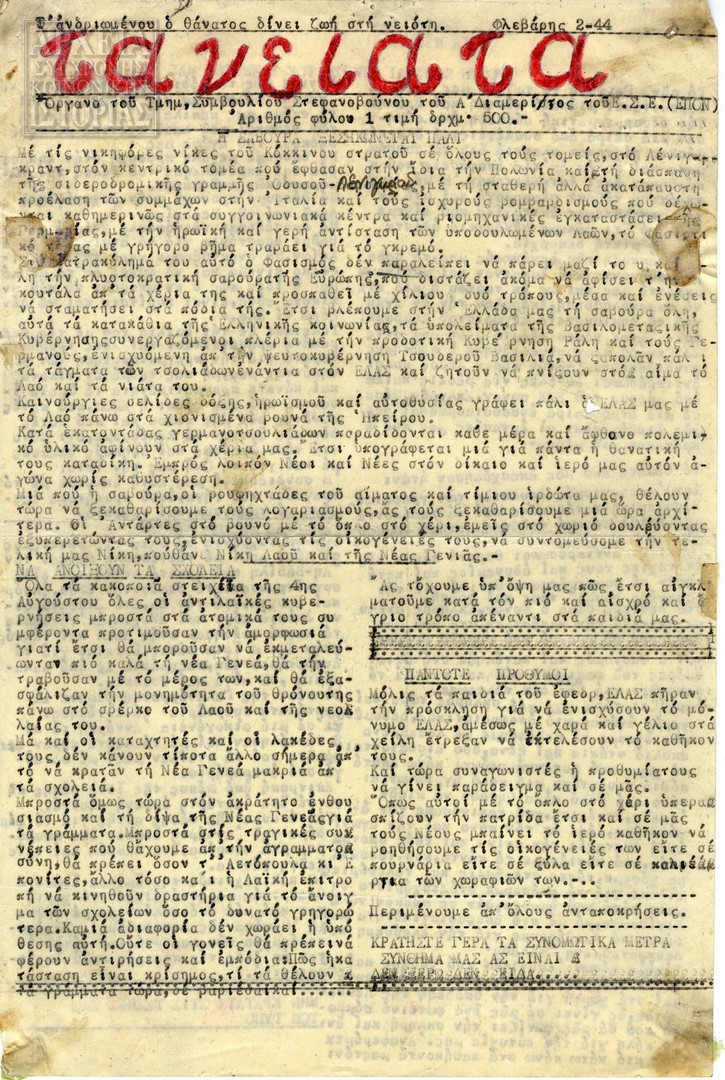 Τ'ἀνδριωμένου ὁ θάνατος δίνει ζωή στή νειότη. Φλεβάρης 2-44
τα νειατα
Ὄργανο τοῦ Τμημ,Συμβουλίου Στεφανοβούνου τοῦ Α΄Διαμερί/τος τοῦ Ε.Σ.Ε.(ΕΠΟΝ)
Ἀριθμός φύλου 1 τιμή δρχμ· 500.-
Η ΣΑΒΟΥΡΑ ΞΕΣΗΚΩΝΕΤΑΙ ΠΑΛΙ
Μέ τίς νικηφόρες νίκες τοῦ Κόκκινου στρατοῦ σέ ὅλους τούς τομεῖς,στό Λένιγκ
κραντ,στόν κεντρικό τομέα πού ἔφθασαν στήν ἴδια τήν Πολωνία καί τή διάσπαση
τῆς σιδεροδρομικῆς γραμμῆς Ὀδυσοῦ-Λένιγκραντ,μέ τή σταθερή ἀλλά ἀκατάπαυστη
προέλαση τῶν συμμάχων στήν Ἰταλία καί τούς ἰσχυρούς βομβαρισμούς πού δέχω
και καθημερινῶς στά συγγοινωνιακά κέντρα καί βιομηχανικές ἐγκαταστάσει
Γερμανίας,μέ τήν ἡρωϊκή καί γερή ἀντίσταση τῶν ὑποδουλωμένων Λαῶν,τό φασιστι
κό τέρας μέ γρήγορο βῆμα τραβάει γιά τό γκρεμό.
Στό κατρακύλημα του αὐτό ὁ Φασισμός δέν παραλείπει νά πάρει μαζί το υ, καί
λη τήν πλουτοκρατική σαβουράτης Εὐρώπης,πού διστάζει ἀκόμα νά ἀφίσει τ'ην
κουτάλα ἀπ'τά χέρια της καί προσπαθεῖ μέ χίλιου δυό τρόπους,μέσα καί ἐνέσεις
νά σταματήσει στά πόδια της. Ἔτσι βλέπουμε στήν Ἑλλάδα μας τή σαβούρα ὅλη,
αὐτά τά κατακάθια τῆς Ἑλληνικῆς κοινωνίας,τά ὑπολείματα τῆς Βασιλομεταξικῆς
Κυβέρνησηςσυνεργαζόμενοι πλέρια μέ τήν προδοτική Κυβέ ρνηση Ράλη καί τούς Γε-
ρμανούς,ἐνισχυόμενη ἀπ'τήν ψευτοκυβέρνηση Τσουδεροῦ Βασιλιά,νά ξαπολᾶν πάλ ι
τά τάγματα τῶν τσολιάδωνἐνάντια στόν ΕΛΑΣ καί ζητοῦν νά πνίξουν στό αἷμα τό
Λαό καί τά νιάτα του.
Καινούργιες σελίδες δόξης,ἡρωϊσμοῦ καί αὐτοθυσίας γράφει πάλι ὁ ΕΛΑΣ μας μέ
τό Λαό πάνω στά χιονισμένα βουνά τῆς Ἠπείρου.
Κατά ἑκατοντάδας γερμανοτσουλιάδων παραδίδονται κάθε μέρα καί ἄφθονο πολεμι
κό ὑλικό ἀφίνουν στά χέρια μας. Ἔτσι ὑπογράφεται μιά γιά πάντα ἡ θανατική
τους καταδίκη. Ἐμπρός λοιπόν Νέοι καί Νέες στόν δίκαιο καί ἱερό μας αὐτόν ἀ-
γώνα χωρίς καθυστέρεση.
Μιά πού ἡ σαβούρα,οἱ ρουφηχτάδες τοῦ αἵματος καί τίμιου ἱδρώτα μας, θέλουν
τώρα νά ξεκαθαρίσουμε τούς λογαριασμούς,ἄς τούς ξεκαθαρίσουμε μιά ὥρα ἀρχί
τερα. Οἱ Ἀντάρτες στό βουνό μέ τό ὅπλο στό χέρι,ἐμεῖς στό χωριό δουλεύοντας
ἐξυπερετώντας τους,ἐνισχύοντας τίς οἰκογένειές τους,νά συντομεύσομε τήν τε-
λική μας Νίκη,πούθἆναι Νίκη Λαοῦ καί τῆς Νέας Γενιᾶς.-
ΝΑ ΑΝΟΙΞΟΥΝ ΤΑ ΣΧΟΛΕΙΑ
Ὅλα τά κακοποιά στειχεῖα τῆς 4ης
Αὐγούστου ὅλες οἱ ἀντιλαϊκές κυβε-
ρνήσεις μπροστά στά ἀτομικά τους συ
μφέροντα προτιμοῦσαν τήν ἀμορφωσιά
γιατί ἔτσι θά μποροῦσαν νά ἐκμεταλεύ-
ωνται πιό καλά τή νέα Γενεά,θά τήν
τραβοῦσαν μέ τό μέρος των,καί θά ἐξα-
σφάλιζαν τήν μονιμότητα τοῦ θρόνουτης
πάνω στό σβέρκο τοῦ Λαοῦ καί τῆς νεολ
λαίας του.
Μά καί οἱ καταχτητές καί οἱ λακέδες
τους δέν κάνουν τίποτα ἄλλο σήμερα ἀπ'
τό νά κρατᾶν τή Νέα Γενεά μακριά ἀπ'
τά σχολειά.
Μπροστά ὅμως τώρα στόν ἀκράτητο ἐνθου
σιασμό καί τή δίψα τῆς Νέας Γενεᾶςγιά
τά γράμματα.Μπροστά στίς τραγικές συν
νέπειες πού θἄχουμε ἀπ'τήν ἀγραμματοσ
σύνη,θά πρέπει ὅσον τ'Ἀετόπουλα κι'Ε
πονίτες,ἄλλο τόσο κα'ι ἡ Λαϊκή ἐπιτρο
πή νά κινηθοῦν δραστήρια γιά τό ἄνοιγ
μα τῶν σχολείων ὅσο τό δυνατό γρηγορώ
τερα.Καμιά ἀδιαφορία δέν χωράει ἡ ὑπό
θεσης αὐτή.Οὔτε οἱ γονεῖς θά πρέπεινά
φέρουν ἀντιρήσεις καί ἐμπόδια:Πῶς ἡκα
τάσταση εἶναι κρίσημος,τί τά θέλουν
τά γράμματα τώρα,
Ἄς τὄχουμε ὑπ'ὄψη μας πῶς ἔτσι αἰγκλ
ματοῦμε κατά τόν πιό καί αἰσχρό καί ἄ
γριο τρόπο ἀπέναντι στά παιδιά μας.
ΠΑΝΤΟΤΕ ΠΡΟΘΥΜΟΙ
Μόλις τά παιδιά τοῦ ἐφεδρ,ΕΛΑΣ πῆραν
τήν πρόσκληση γιά νά ἐνισχύσουν τό μό-
νυμο ΕΛΑΣ,ἀμέσως μέ χαρά καί γέλιο στά
χείλη ἔτρεξαν νά ἐκτελέσουν τό καθῆκον
τους.
Καί τώρα συναγωνιστές ἡ προθυμίατους
νά γίνει παράδειγμα καί σέ μᾶς.
Ὅπως αὐτοί μέ τό ὅπλο στό χέρι ὑπερα
σπίζουν τήν πατρίδα ἔτσι καί σέ μᾶς
τούς Νέους μπαίνει τό ἱερό καθῆκον νά
βοηθήσουμε τίς οἰκογένειές των εἴτε σέ
πουρνάρια εἴτε σέ ξύλα εἴτε σέ καλιέ
ργεια τῶν χωραφιῶν των.-..
Περιμένουμε ἀπ'ὅλους ἀνταποκρήσεις.
ΚΡΑΤΗΣΤΕ ΓΕΡΑ ΤΑ ΣΥΝΟΜΩΤΙΚΑ ΜΕΤΡΑ
ΣΥΝΘΗΜΑ ΜΑΣ ΑΣ ΕΙΝΑΙ
ΔΕΝ ΞΕΡΩ ΔΕΝ ΕΙΔΑ....